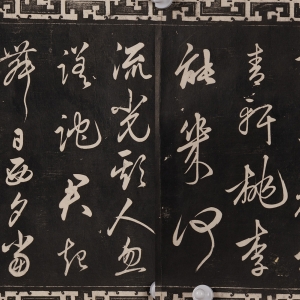 青軒桃李
能幾何
流光欺人忽
蹉跎君起
舞日西夕當